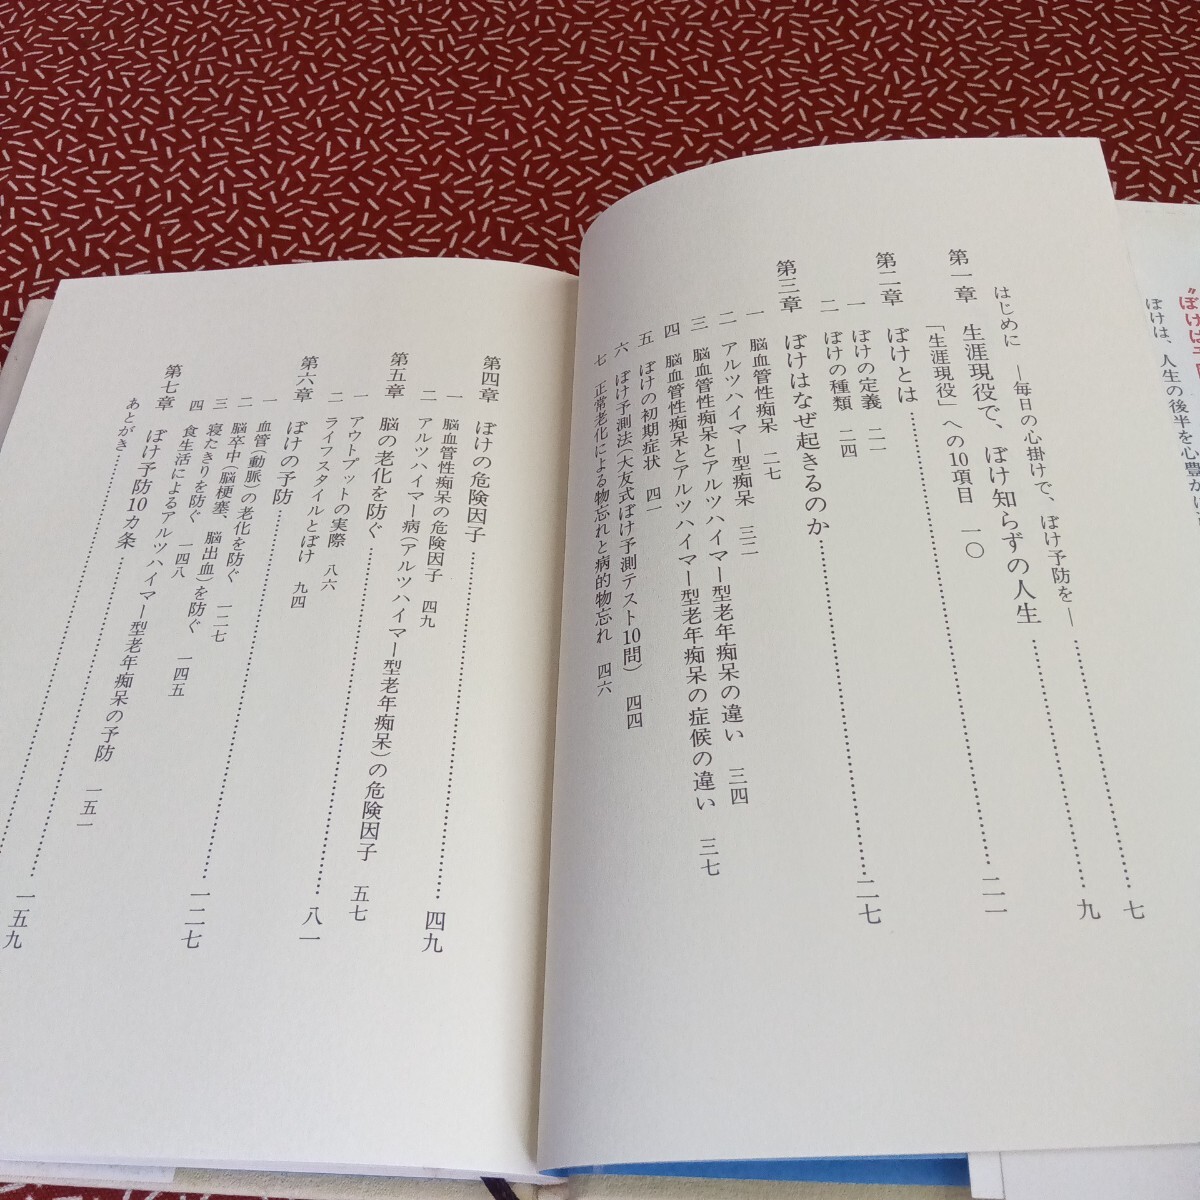 はじめに ―毎日の心掛けで、ぼけ予防を― …… 七
第一章 生涯現役で、ぼけ知らずの人生 …… 九
「生涯現役」への10項目 一〇
第二章 ぼけとは …… 二一
一 ぼけの定義 二一
二 ぼけの種類 二四
第三章 ぼけはなぜ起きるのか …… 二七
一 脳血管性痴呆 二七
二 アルツハイマー型痴呆 三二
三 脳血管性痴呆とアルツハイマー型老年痴呆の違い 三四
四 脳血管性痴呆とアルツハイマー型老年痴呆の症候の違い 三七
五 ぼけの初期症状 四一
六 ぼけ予測法(大友式ぼけ予測テスト10問) 四四
七 正常老化による物忘れと病的物忘れ 四六
第四章 ぼけの危険因子 …… 四九
一 脳血管性痴呆の危険因子 四九
二 アルツハイマー病(アルツハイマー型老年痴呆)の危険因子 五七
第五章 脳の老化を防ぐ …… 八一
一 アウトプットの実際 八六
二 ライフスタイルとぼけ 九四
第六章 ぼけの予防 …… 一二七
一 血管(動脈)の老化を防ぐ 一二七
二 脳卒中(脳梗塞、脳出血)を防ぐ 一四五
三 寝たきりを防ぐ 一四八
四 食生活によるアルツハイマー型老年痴呆の予防 一五一
第七章 ぼけ予防10カ条 …… 一五九
あとがき ……
ぼけは、人生の後半を心豊かに